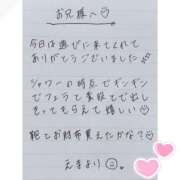 お兄様へ
今日は遊びに来てくれて
ありがとうございました
シャワーの時点でギンギン
でフェラで素股でで出し
てもらえて嬉しい
靴とお財布買えたかな？
えまより